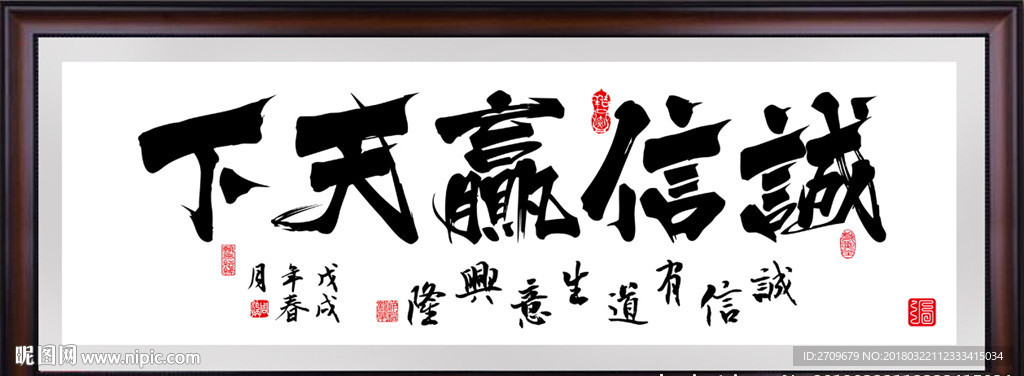 誠信贏天下
誠信有道生意興隆
戊戌年春月
昵图网 www.nipic.com
ID:2709679 NO:20180322112333415034